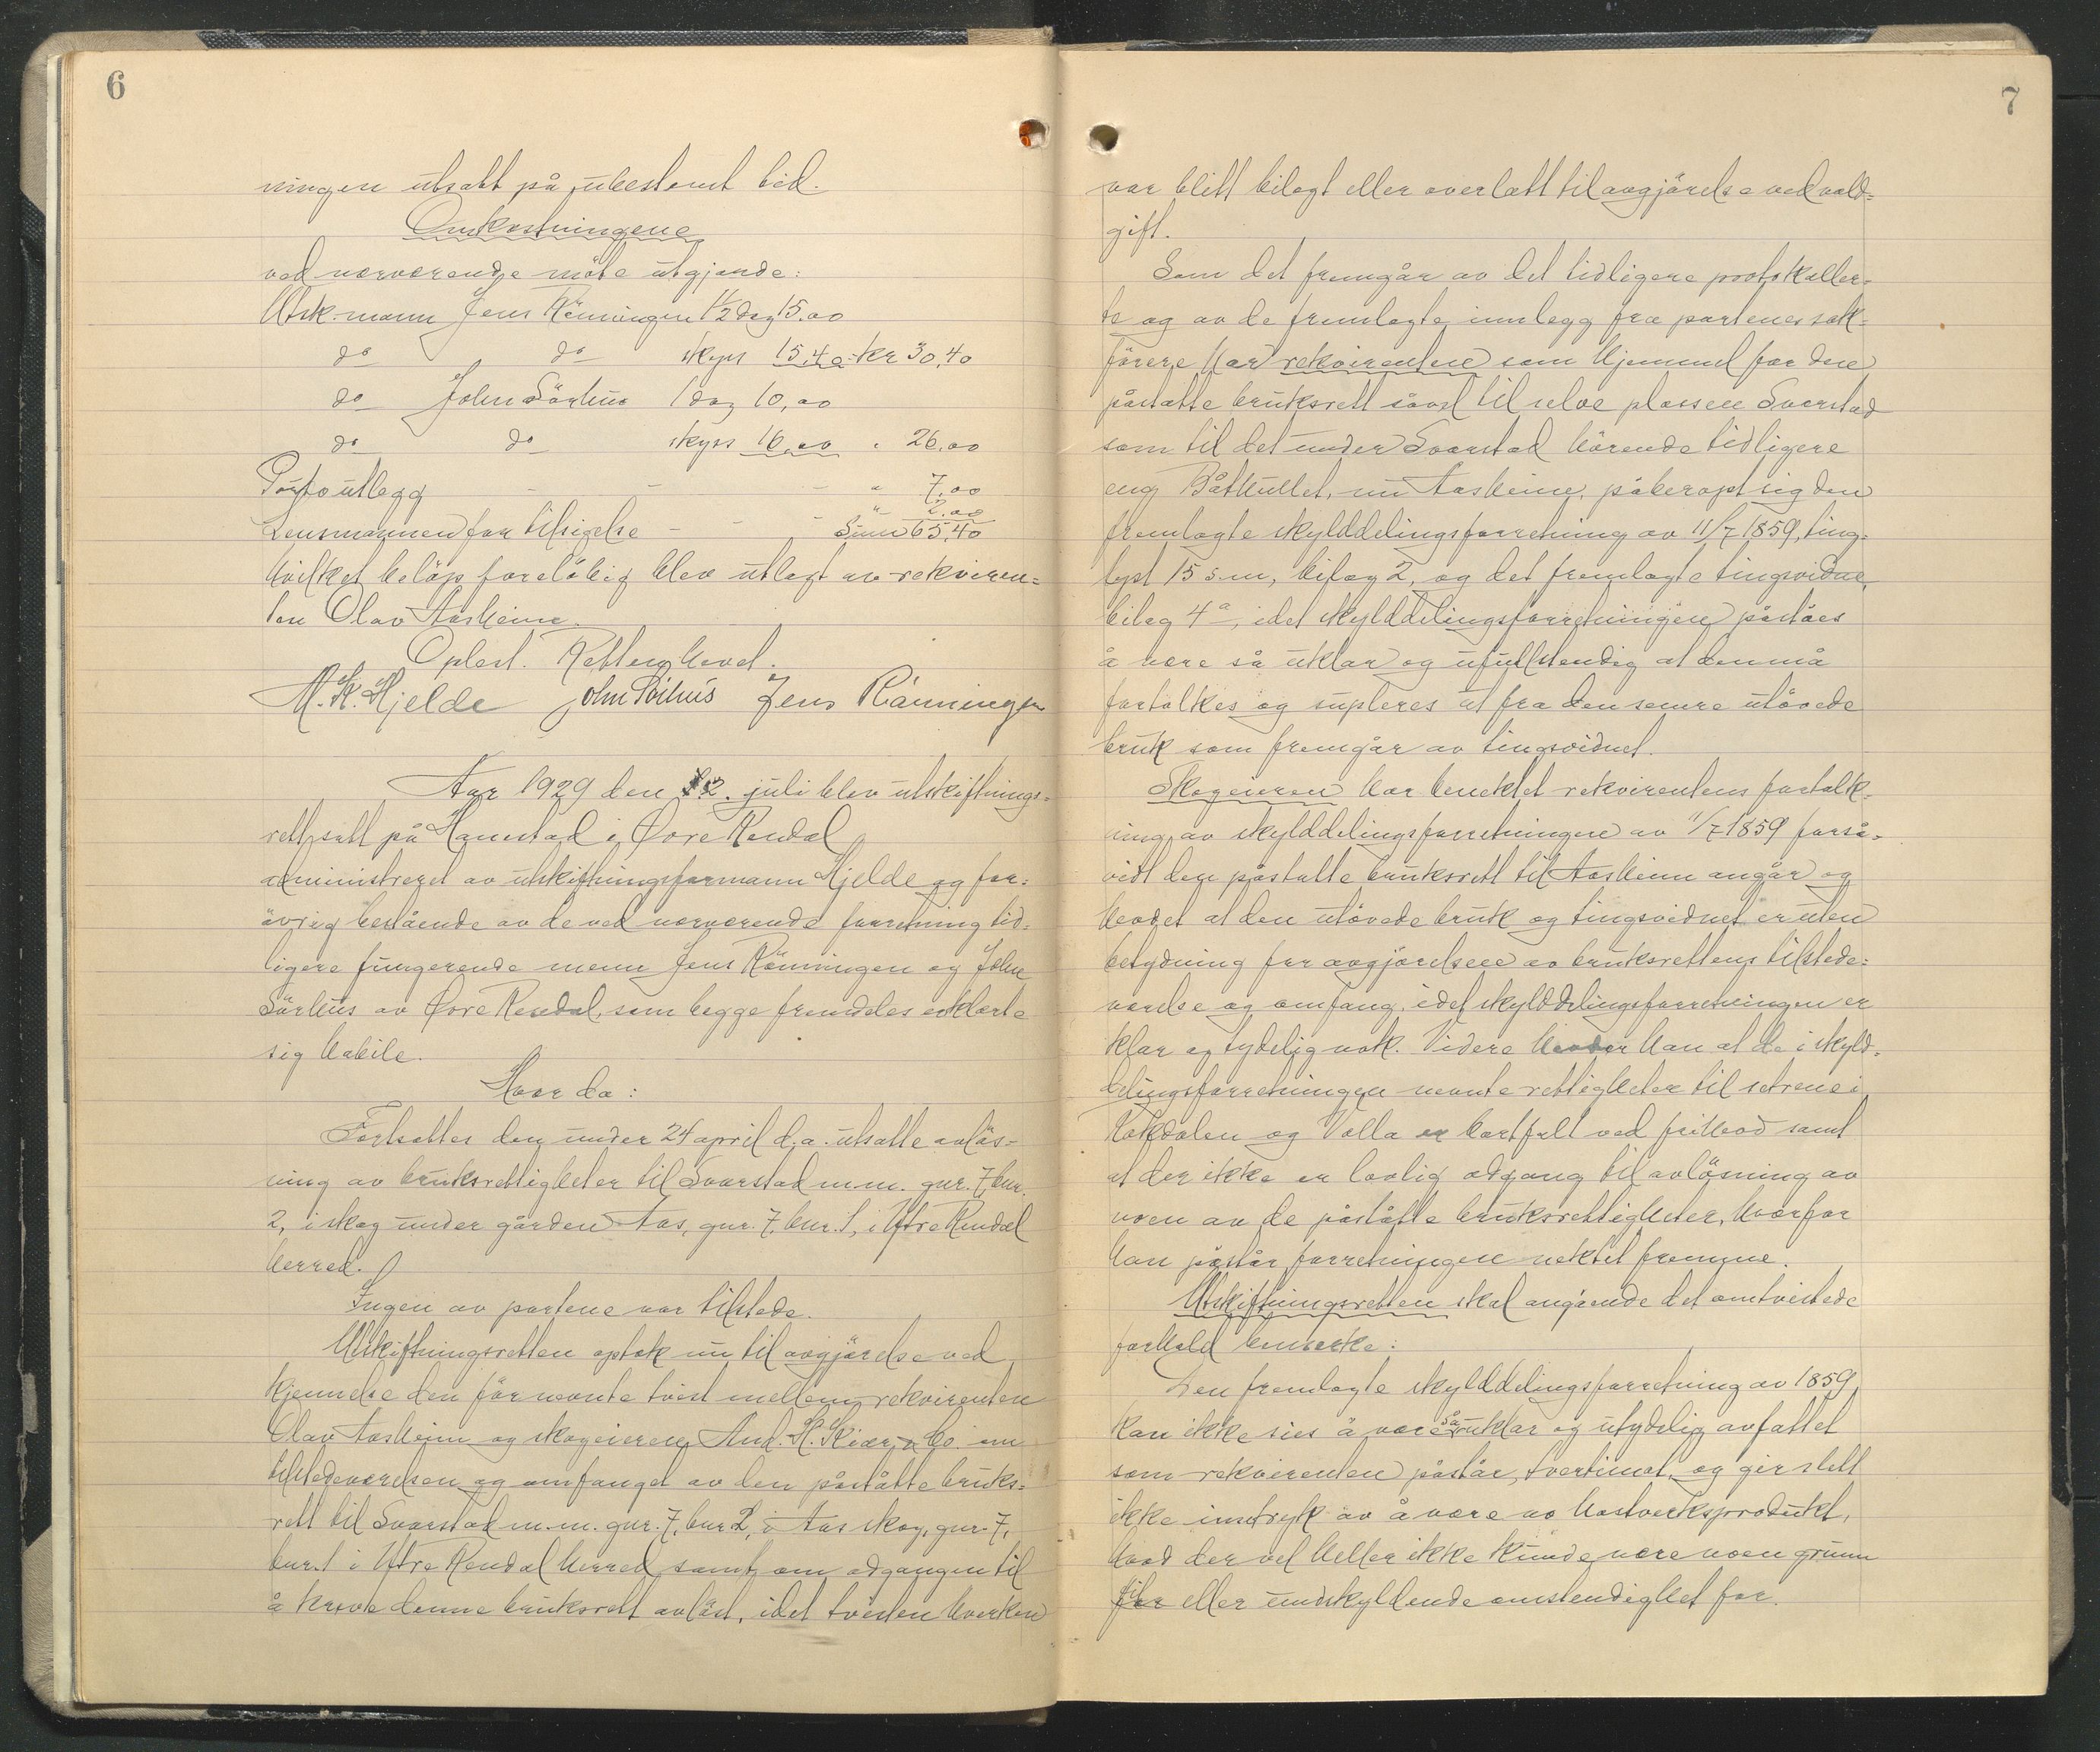 6
ningen utsatt på ubestemt tid.
Omkostningene
ved nærværende møte utgjørde:
Utsk.mann Jens Rönningen 1½ dag 15.00
do do skyss 15.40 kr 30.40
do John Sörhus 1 dag 10,00
do do skyss 16.00 " 26.00
Porto utlegg - - - " 7.00
Lensmannen for tilsigelse - - - " 2.00
Sum 65,40
hvilket beløp foreløbig blev utlagt av rekviren=
ten Olav Aasheim.
Oplest. Retten hevet.
M. K. Hjelde John Sörhus Jens Rönningen
Aar 1929 den 12. juli blev utskiftnings-
rett satt på Hanestad i Øvre Rendal
administrert av utskiftningsformann Hjelde og for=
övrig bestående av de ved nærværende forretning tid=
ligere fungerende menn Jens Rönningen og John
Sörhus av Øvre Rendal, som begge fremdeles erklærte
sig habile.
Hvor da:
Fortsattes den under 24 april d.a. utsatte avløs=
ning av bruksrettigheter til Svarstad m.m. gnr. 7, bnr.
2, i skog under gården Aas, gnr. 7, bnr. 1, i Ytre Rendal
herred.
Ingen av partene var tilstede.
Utskiftningsretten optok nu til avgjørelse ved
kjennelse den før nevnte tvist mellem rekvirenten
Olav Aasheim og skogeieren And. H. Kiær & Co. om
tilstedeværelsen og omfanget av den påståtte bruks=
rett til Svarstad m.m. gnr. 7, bnr 2, i Aas skog, gnr. 7,
bnr. 1 i Ytre Rendal herred samt om adgangen til
å kreve denne bruksrett avløst, idet tvisten hverken
7
var blitt bilagt eller overlatt til avgjørelse ved vold=
gift.
Som det fremgår av det tidligere protokoller=
te og av de fremlagte innlegg fra partenes sak=
förere har rekvirenten som hjemmel for den
påstatte bruksrett såvel til selve plassen Svarstad
som til det under Svarstad hørende tidligere
eng Båthullet, nu Aasheim, påberopt sig den
fremlagte skylddelingsforretning av 11/7 1859, ting=
lyst 15 s.m., bilag 2, og det fremlagte tingsvidne,
bilag 4a, idet skylddelingsforretningen påståes
å være så uklar og ufullstendig at den må
fortolkes og supleres ut fra den senere utøvede
bruk som fremgår av tingsvidnet.
Skogeieren har benektet rekvirentens fortolk=
ning av skylddelingsforretningen av 11/7 1859 forså=
vidt den påståtte bruksrett til Aasheim angår og
hevdet at den utøvede bruk og tingsvidnet er uten
betydning for avgjørelsen av bruksrettens tilstede=
værelse og omfang, idet skylddelingsforretningen er
klar og tydelig nok. Videre hevder han at de i skyld=
delingsforretningen nevnte rettigheter til setrene i
Kokdalen og Valla er bortfalt ved frihevd samt
at der ikke er lovlig adgang til avløsning av
noen av de påståtte bruksrettigheter, hvorfor
han påstår forretningen nektet fremme.
Utskiftningsretten skal angående det omtvistede
forhold bemerke:
Den fremlagte skylddelingsforretning av 1859
kan ikke sies å være så uklar og utydelig avfattet
som rekvirenten påstår, tvertimot, og gir slett
ikke inntrykk av å være no hastverksprodukt,
hvad der vel heller ikke kunde være noen grunn
til eller undskyldende omstendighet for.